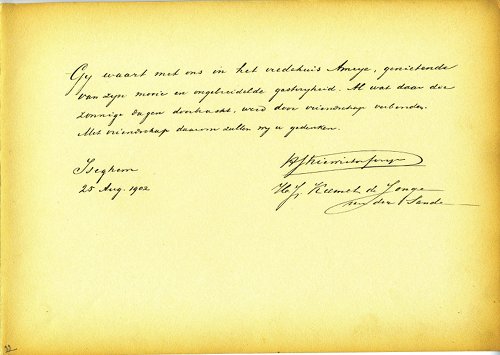 Gy waart met ons in het vredehuis Ameye, genietende
van zyn mooie en ongebreidelde gastvryheid. Al wat daar die
zonnige dagen doorbracht, werd door vriendschap verbonden.
Met vriendschap daarom zullen wy u gedenken.
Iseghem
25 Aug. 1902
H. J. Kiewiet de Jonge
van der Sande